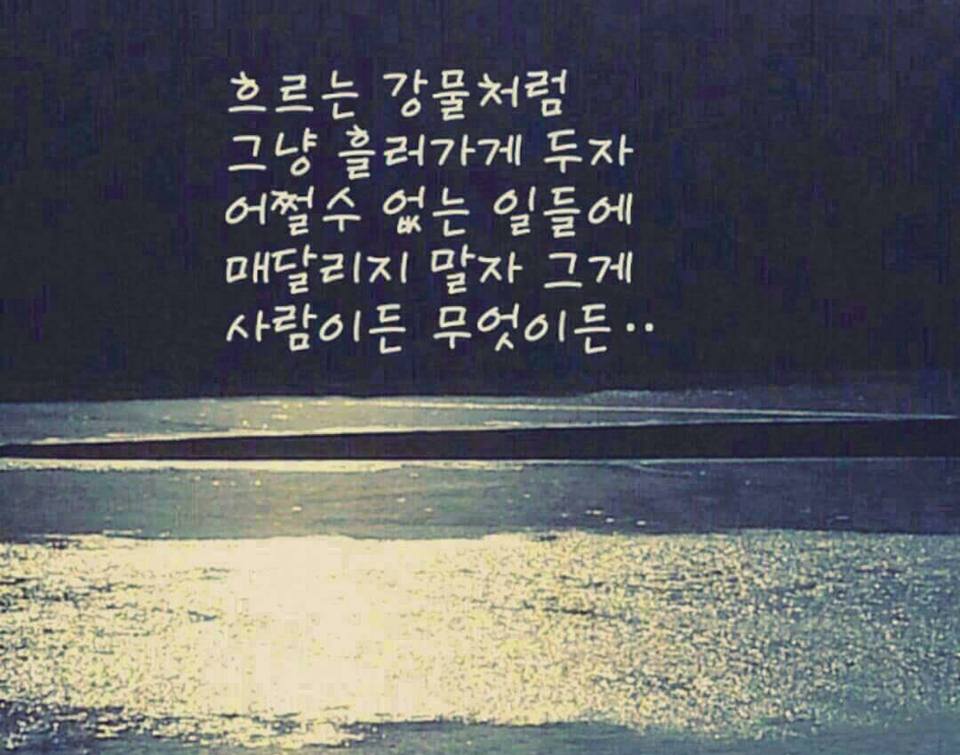 흐르는 강물처럼
그냥 흘러가게 두자
어쩔수 없는 일들에
매달리지 말자 그게
사람이든 무엇이든··